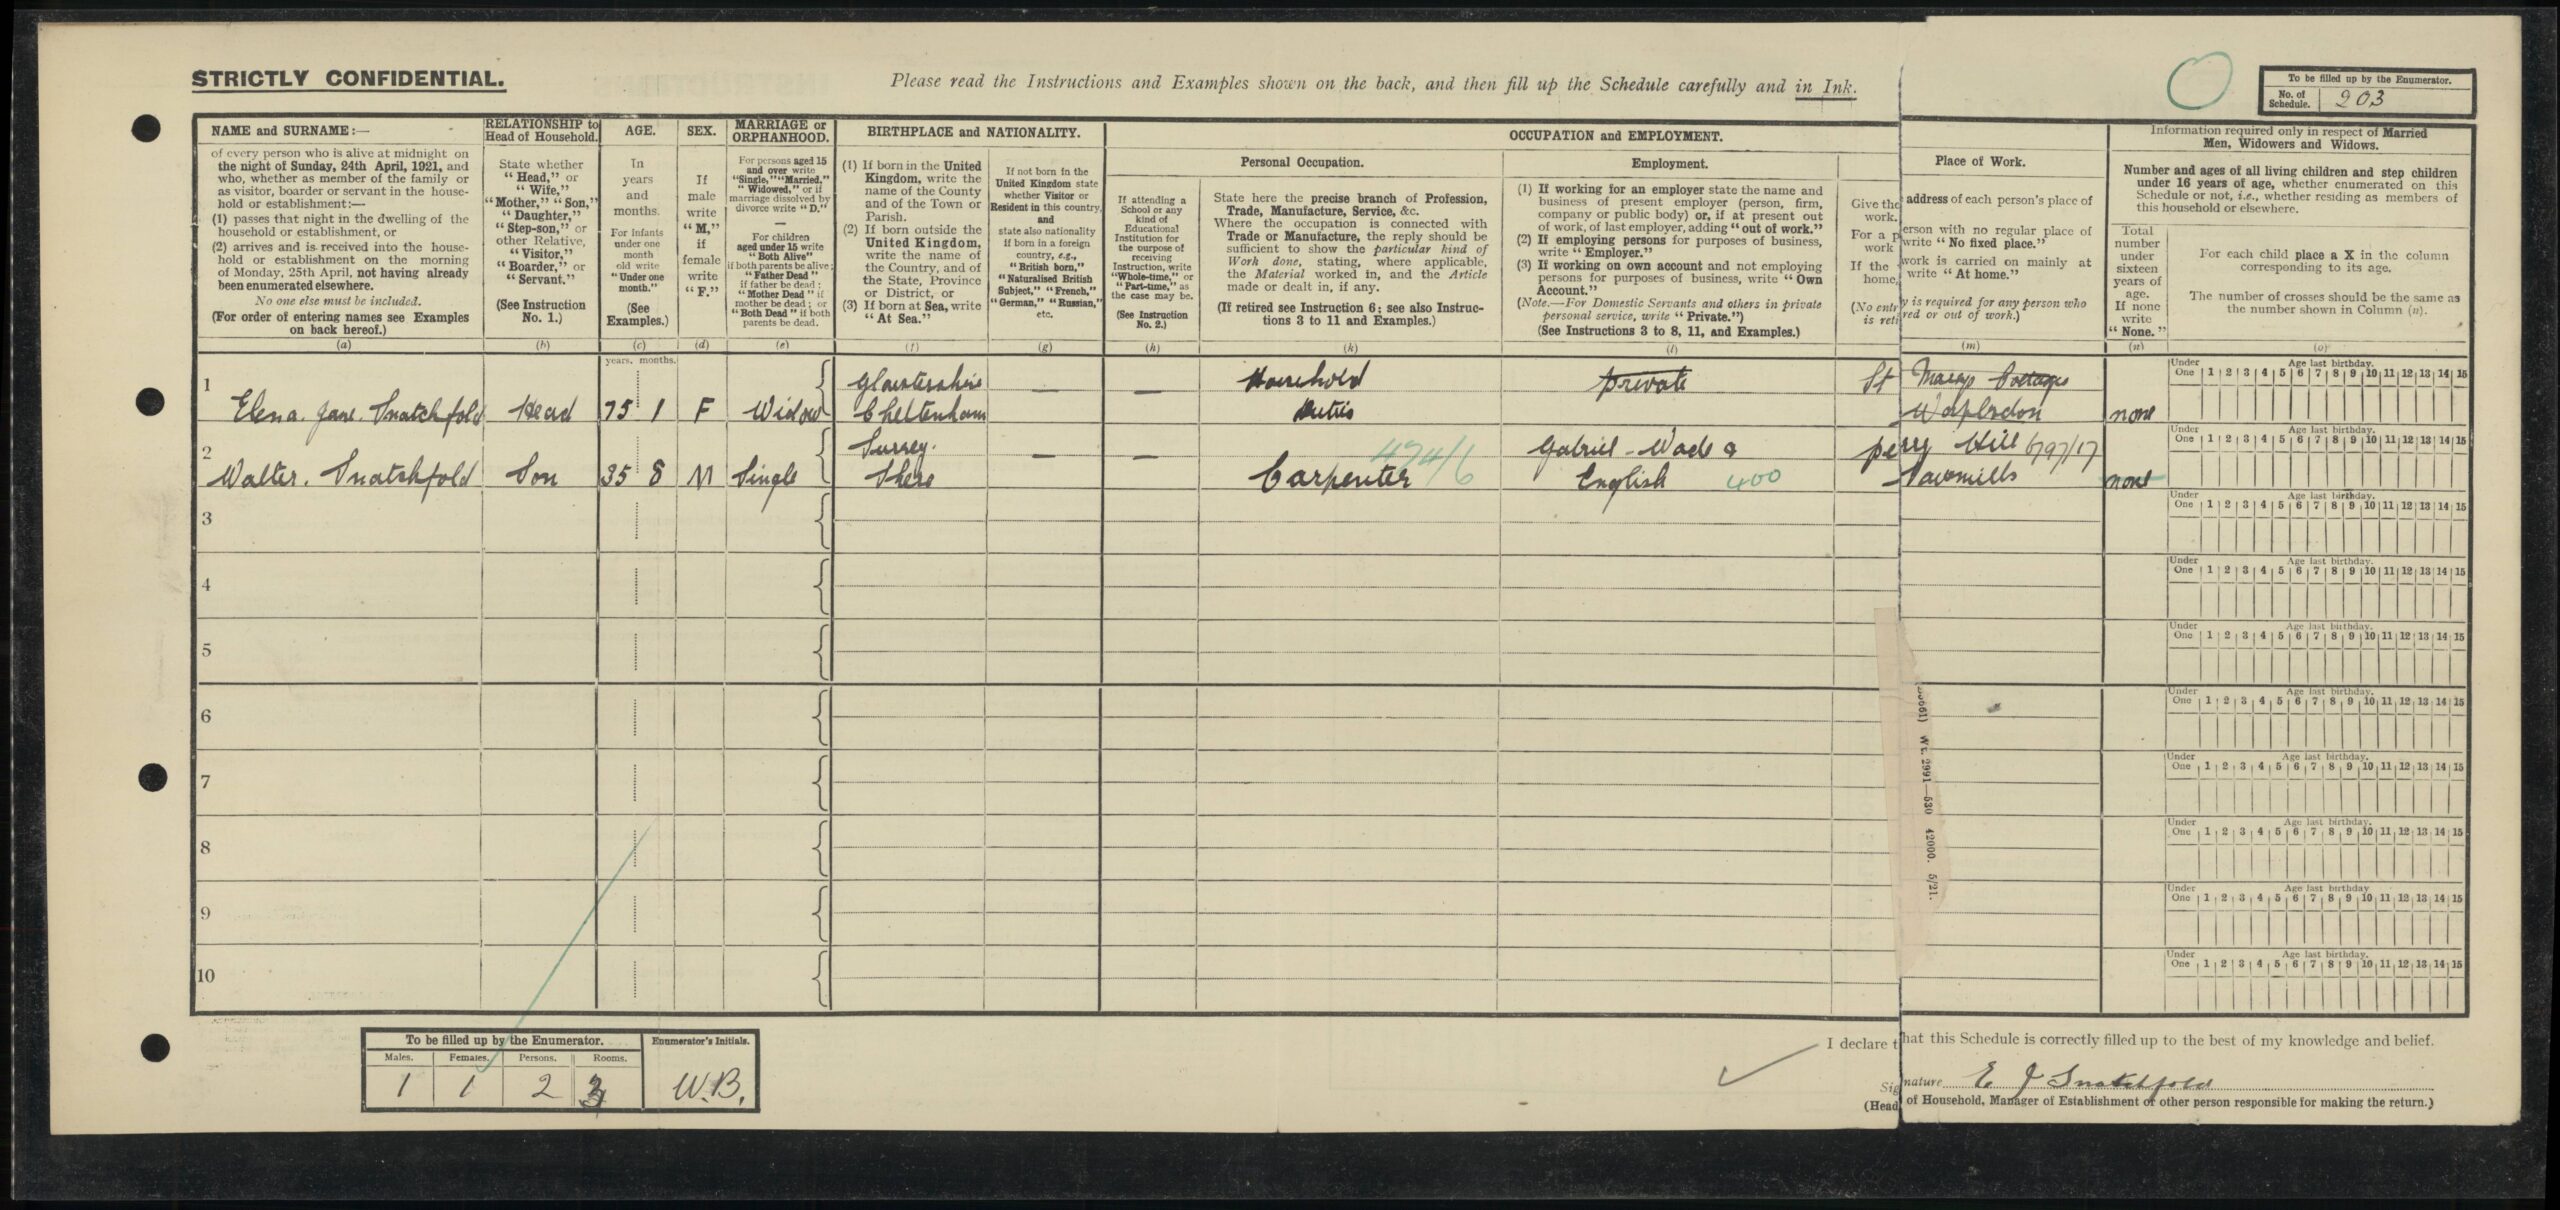 STRICTLY CONFIDENTIAL.
Please read the Instructions and Examples shown on the back, and then fill up the Schedule carefully and in Ink.
To be filled up by the Enumerator.
No. of Schedule. 203
NAME and SURNAME:—
of every person who is alive at midnight on
the night of Sunday, 24th April, 1921, and
who, whether as member of the family or
as visitor, boarder or servant in the house-
hold or establishment:—
(1) passes that night in the dwelling of the
household or establishment, or
(2) arrives and is received into the house-
hold or establishment on the morning
of Monday, 25th April, not having already
been enumerated elsewhere.
No one else must be included.
(For order of entering names see Examples
on back hereof.)
(a)
RELATIONSHIP to
Head of Household.
State whether
"Head," or
"Wife,"
"Mother," "Son,"
"Daughter,"
"Step-son," or
other Relative,
"Visitor,"
"Boarder," or
"Servant."
(See Instruction
No. 1.)
(b)
AGE.
In
years
and
months.
For infants
under one
month
old write
"Under one
month."
(See
Examples.)
(c)
SEX.
If
male
write
"M,"
if
female
write
"F."
(d)
MARRIAGE or
ORPHANHOOD.
For persons aged 15
and over write
"Single," "Married,"
"Widowed," or if
marriage dissolved by
divorce write "D."
—
For children
aged under 15 write
"Both Alive"
if both parents be alive;
"Father Dead"
if father be dead;
"Mother Dead" if
mother be dead; or
"Both Dead" if both
parents be dead.
(e)
BIRTHPLACE and NATIONALITY.
(1) If born in the United
Kingdom, write the
name of the County
and of the Town or
Parish.
(2) If born outside the
United Kingdom,
write the name of
the Country, and of
the State, Province
or District, or
(3) If born at Sea, write
"At Sea."
(f)
If not born in the
United Kingdom state
whether Visitor or
Resident in this country,
and
state also nationality
if born in a foreign
country, e.g.,
"British born,"
"Naturalised British
Subject," "French,"
"German," "Russian,"
etc.
(g)
OCCUPATION and EMPLOYMENT.
If attending a
School or any
kind of
Educational
Institution for
the purpose of
receiving
Instruction, write
"Whole-time," or
"Part-time," as
the case may be.
(See Instruction
No. 2.)
(h)
Personal Occupation.
State here the precise branch of Profession,
Trade, Manufacture, Service, &c.
Where the occupation is connected with
Trade or Manufacture, the reply should be
sufficient to show the particular kind of
Work done, stating, where applicable,
the Material worked in, and the Article
made or dealt in, if any.
(If retired see Instruction 6; see also Instruc-
tions 3 to 11 and Examples.)
(k)
Employment.
(1) If working for an employer state the name and
business of present employer (person, firm,
company or public body) or, if at present out
of work, of last employer, adding "out of work."
(2) If employing persons for purposes of business,
write "Employer."
(3) If working on own account and not employing
persons for purposes of business, write "Own
Account."
(Note.—For Domestic Servants and others in private
personal service, write "Private.")
(See Instructions 3 to 8, 11, and Examples.)
(l)
Place of Work.
Give the address of each person's place of
work.
For a person with no regular place of
work write "No fixed place."
If the work is carried on mainly at
home, write "At home."
(No entry is required for any person who
is retired or out of work.)
(m)
Information required only in respect of Married
Men, Widowers and Widows.
Number and ages of all living children and step children
under 16 years of age, whether enumerated on this
Schedule or not, i.e., whether residing as members of
this household or elsewhere.
Total
number
under
sixteen
years of
age.
If none
write
"None."
(n)
For each child place a X in the column
corresponding to its age.
The number of crosses should be the same as
the number shown in Column (n).
(o)
years. months.
1 Glouстershire Household private St Marys Cottages
Elena Jane Snatchfold Head 75 1 F Widow Cheltenham — — Duties Worplesdon none
Under One Age last birthday. 1 2 3 4 5 6 7 8 9 10 11 12 13 14 15
2 Surrey. 474/6 Gabriel - Wade & perry Hill 697/17
Walter. Snatchfold Son 35 8 M Single Shere — — Carpenter English 400 Sawmills none
Under One Age last birthday. 1 2 3 4 5 6 7 8 9 10 11 12 13 14 15
3
Under One Age last birthday. 1 2 3 4 5 6 7 8 9 10 11 12 13 14 15
4
Under One Age last birthday. 1 2 3 4 5 6 7 8 9 10 11 12 13 14 15
5
Under One Age last birthday. 1 2 3 4 5 6 7 8 9 10 11 12 13 14 15
6
Under One Age last birthday. 1 2 3 4 5 6 7 8 9 10 11 12 13 14 15
7
Under One Age last birthday. 1 2 3 4 5 6 7 8 9 10 11 12 13 14 15
8
Under One Age last birthday. 1 2 3 4 5 6 7 8 9 10 11 12 13 14 15
9
Under One Age last birthday 1 2 3 4 5 6 7 8 9 10 11 12 13 14 15
10
Under One Age last birthday. 1 2 3 4 5 6 7 8 9 10 11 12 13 14 15
Wt. 2991—530 42000. 5/21.
To be filled up by the Enumerator.
Males. Females. Persons. Rooms.
1 1 2 3
Enumerator's Initials.
W.B.
I declare that this Schedule is correctly filled up to the best of my knowledge and belief.
Signature E J Snatchfold
(Head of Household, Manager of Establishment or other person responsible for making the return.)